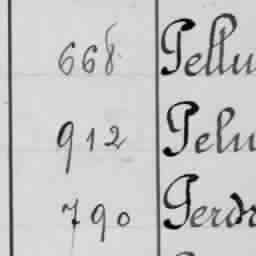 668 Pellu
912 Pelu
790 Perdr